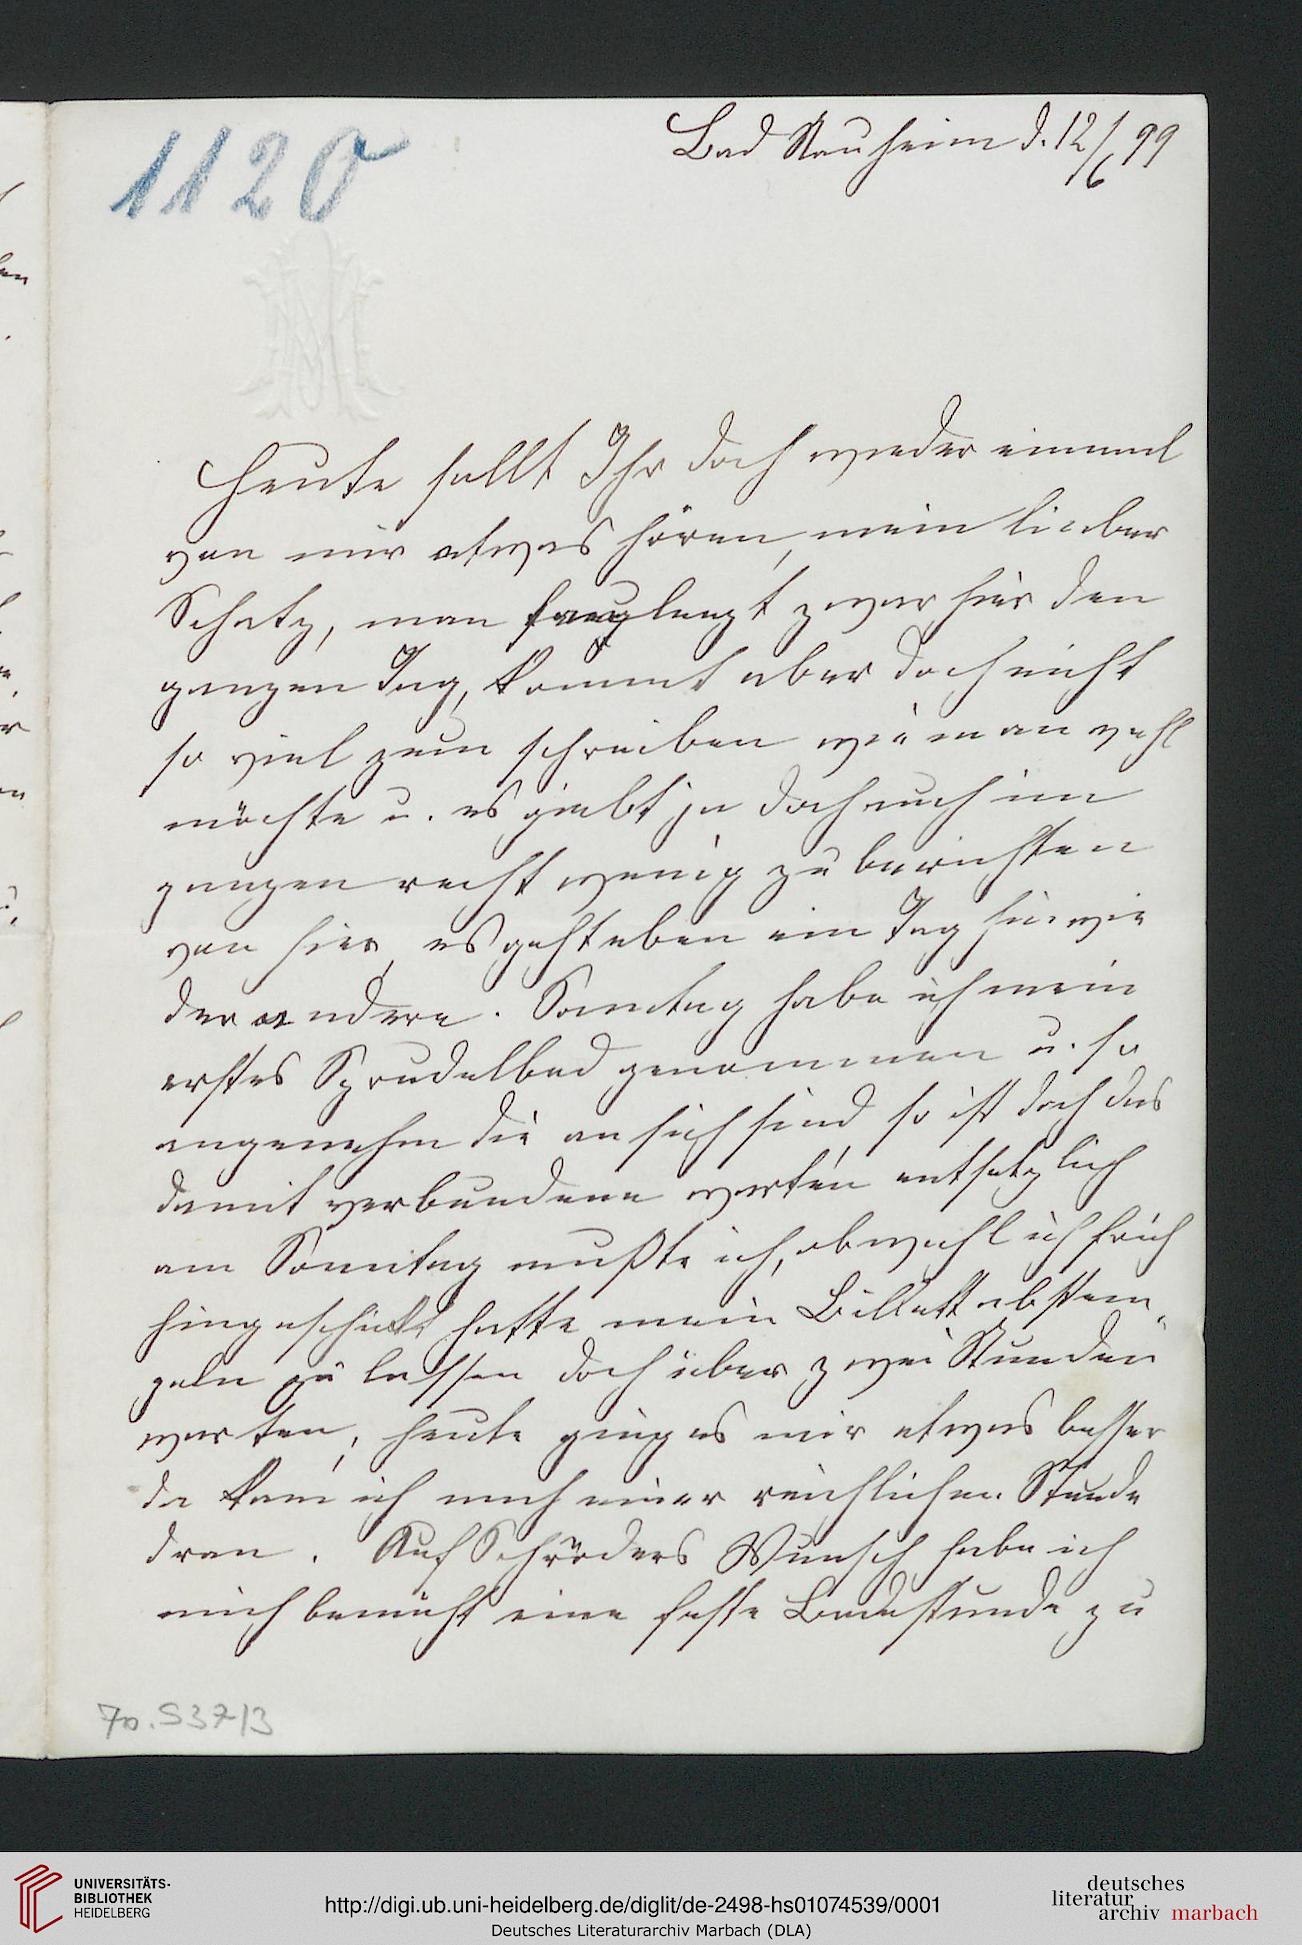 1120
Bad Nauheim d. 12/6 99
Heute sollt Ihr doch wieder einmal
von mir etwas hören, mein lieber
Schatz, man faulenzt zwar hier den
ganzen Tag, kommt aber doch nicht
so viel zum schreiben wie man wohl
möchte u. es giebt ja doch auch im
ganzen recht wenig zu berichten
von hier, es geht eben ein Tag hin wie
der andere. Sonntag habe ich mein
erstes Sprudelbad genommen u. so
angenehm die an sich sind so ist doch das
damit verbundene warten entsetzlich
am Sonntag mußte ich, obwohl ich früh
hingeschickt hatte mein Billett abstem¬
peln zu lassen doch über zwei Stunden
warten, heute ging es mir etwas besser
da kam ich nach einer reichlichen Stunde
dran. Auf Schröders Wunsch habe ich
mich bemüht eine feste Badestunde zu
70.537/3
UNIVERSITÄTS-
BIBLIOTHEK
HEIDELBERG
http://digi.ub.uni-heidelberg.de/diglit/de-2498-hs01074539/0001
Deutsches Literaturarchiv Marbach (DLA)
deutsches
literatur
archiv marbach